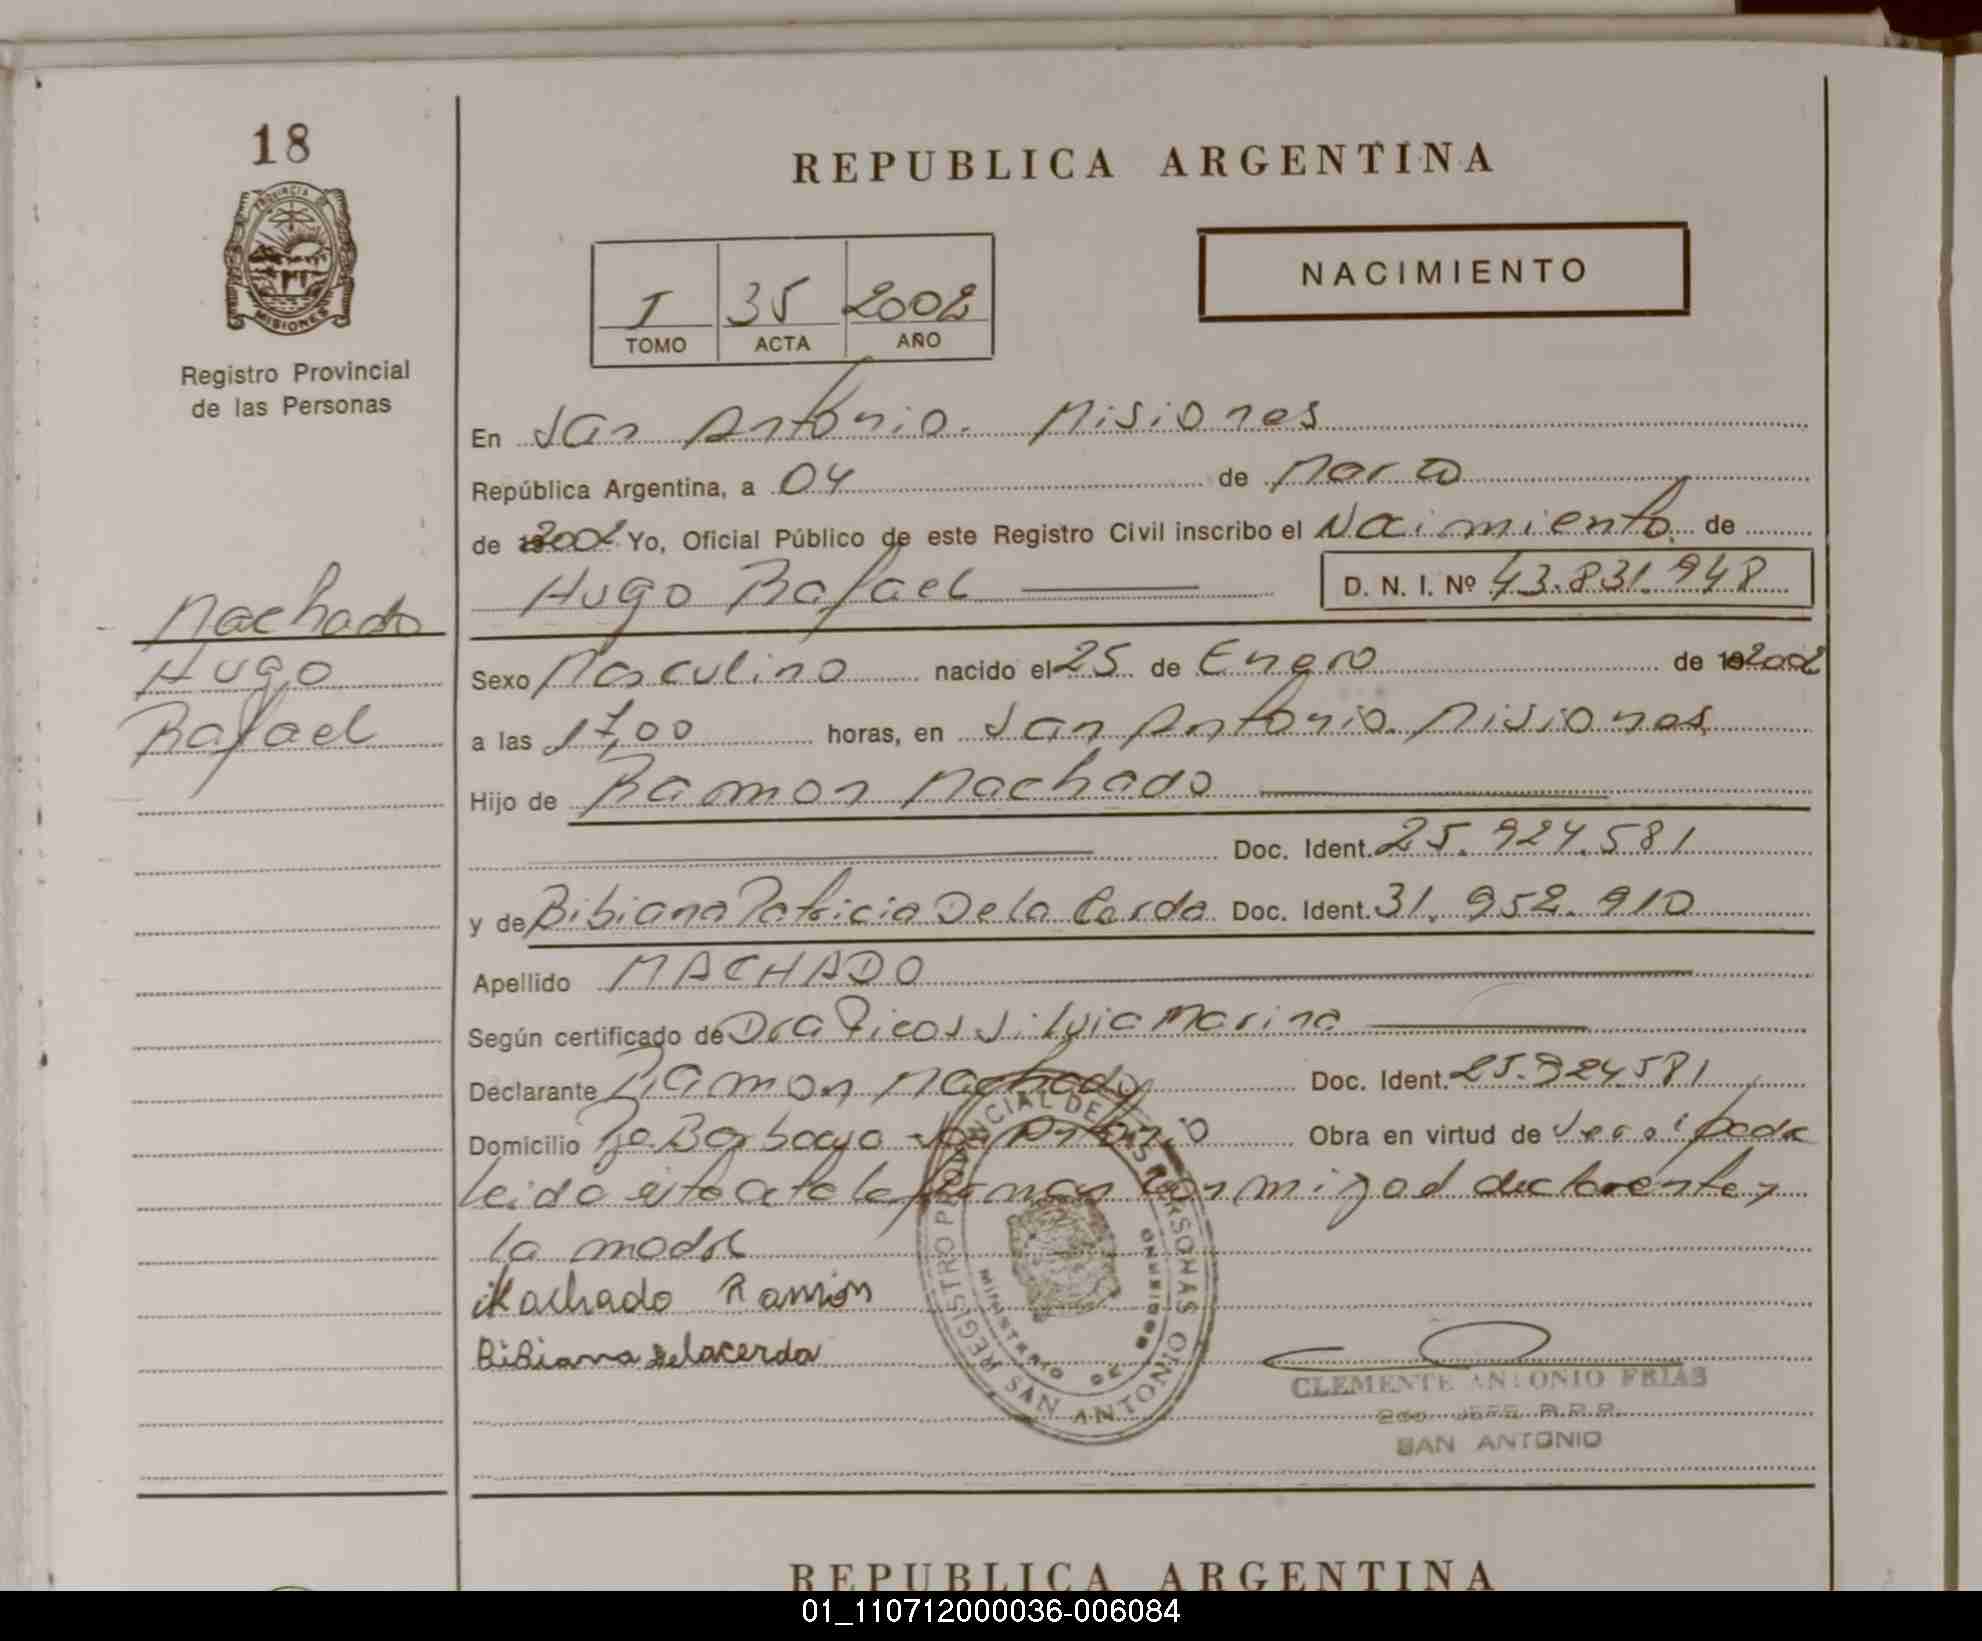 18
PROVINCIA
MISIONES
Registro Provincial
de las Personas
Machado
Hugo
Rafael
REPUBLICA ARGENTINA
I 35 2002
TOMO ACTA AÑO
NACIMIENTO
En San Antonio. Misiones
República Argentina, a 04 de Marzo
de 2002 Yo, Oficial Público de este Registro Civil inscribo el Nacimiento de
Hugo Rafael D. N. I. Nº 43.831.948
Sexo Masculino nacido el 25 de Enero de 2002
a las 17,00 horas, en San Antonio. Misiones
Hijo de Ramon Machado
Doc. Ident. 25.924.581
y de Bibiana Patricia De la Cerda Doc. Ident. 31.952.910
Apellido MACHADO
Según certificado de Dra Picos Silvia Marina
Declarante Ramon Machado Doc. Ident. 25.924.581
Domicilio San Antonio Obra en virtud de
Leida esta acta la firman con migo el declarante y
la madre
Machado Ramón
BiBiana delacerda
REGISTRO PROVINCIAL DE LAS PERSONAS
MINISTERIO DE GOBIERNO
SAN ANTONIO
CLEMENTE ANTONIO FRIAS
JEFE R.P.P.
SAN ANTONIO
REPUBLICA ARGENTINA
01_110712000036-006084